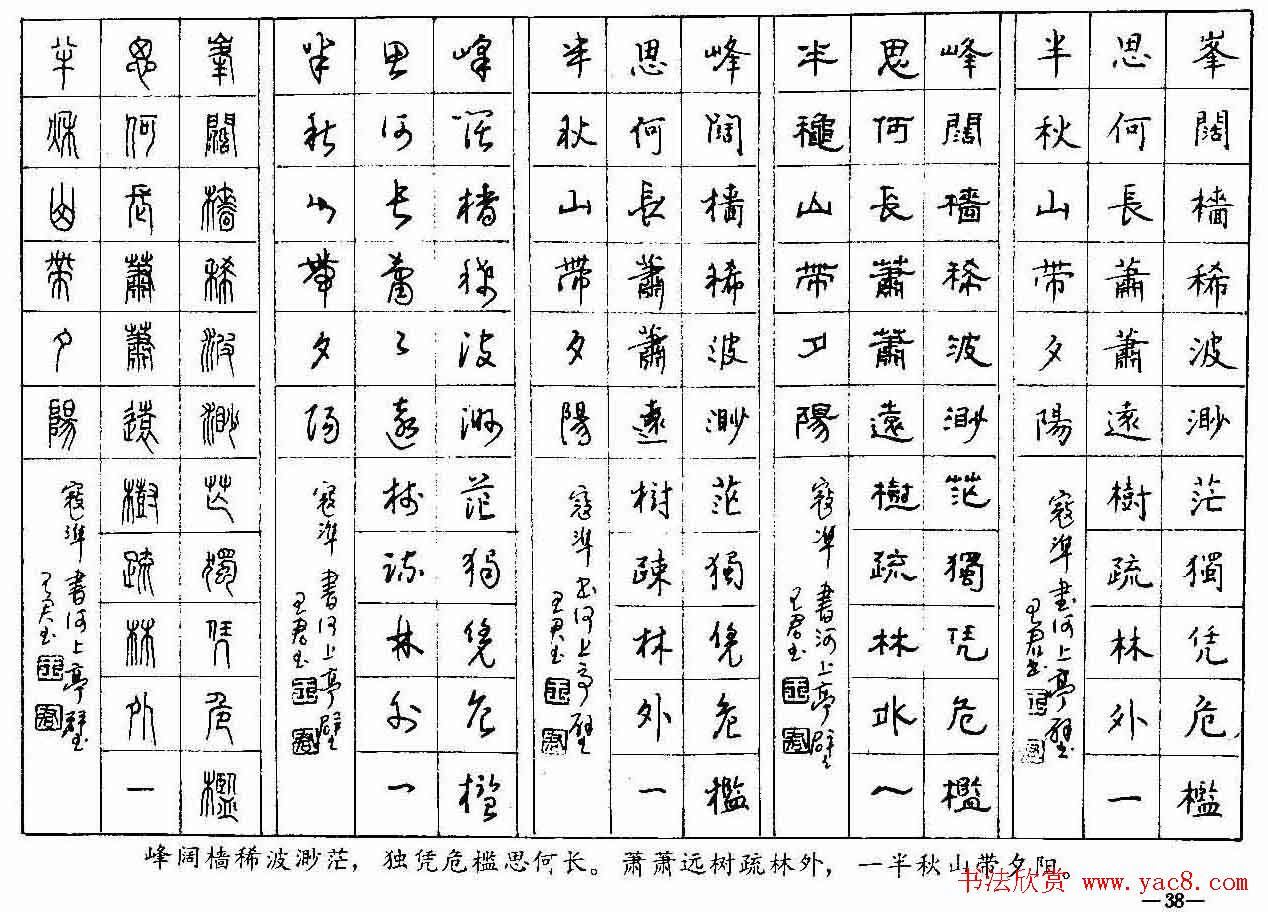 峯闊檣稀波渺茫獨凭危檻
思何長蕭蕭遠樹疏林外一
半秋山带夕陽
寇準書河上亭壁
王君書
峰闊檣稀波渺茫獨凭危檻
思何長蕭蕭遠樹疏林外一
半龝山带夕陽
寇準書河上亭壁
王君書
峰闊檣稀波渺茫獨凭危檻
思何長蕭蕭遠樹疎林外一
半秋山带夕陽
寇準書河上亭壁
王君書
峰闊檣稀波渺茫獨凭危檻
思何長蕭々遠樹疏林外一
半秋山帶夕陽
寇準書河上亭壁
王君書
峯闊檣稀波渺茫獨凭危檻
思何長蕭蕭遠樹疏林外一
半秋山帶夕陽
寇準書河上亭壁
王君書
峰阔樯稀波渺茫，独凭危槛思何长。萧萧远树疏林外，一半秋山带夕阳。
书法欣赏 www.yac8.com
—38—